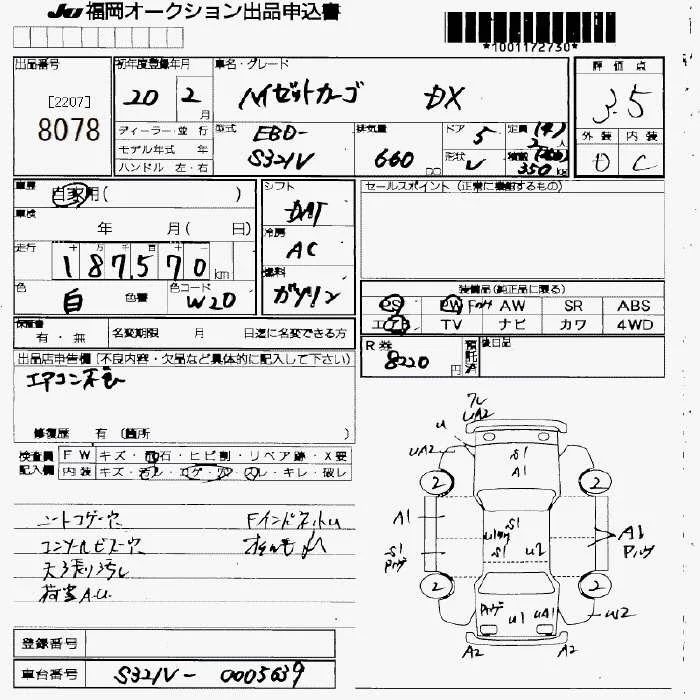 JU 福岡オークション出品申込書
*1001172730*
出品番号
[2207]
8078
初年度登録年月
20 2 月
車名・グレード
ハイゼットカーゴ DX
評価点
3.5
外装 内装
D C
ディーラー・並行
モデル年式 年
ハンドル 左・右
型式
EBD-
S321V
排気量
660 cc
ドア 5
形状 V
定員 (4)
2 人
積載
350 kg
車歴
自家用( )
車検
年 月( 日)
走行
十 万 千 百 十
187570 km
色
白 色替
色コード
W20
シフト
DAT
冷房
AC
燃料
ガソリン
セールスポイント (正常に機能するもの)
装備品(純正品に限る)
PS PW AW SR ABS
エアB TV ナビ カワ 4WD
保証書
有・無
名変期限 月 日迄に名変できる方
R券
8220 円
預託済
後日品
出品店申告欄 (不良内容・欠品など具体的に記入して下さい)
エアコン不良
修復歴 有 (箇所 )
検査員記入欄
FW キズ・飛石・ヒビ割・リペア跡・X要
内装 キズ・汚れ・コゲ・穴・スレ・キレ・破レ
シートコゲ穴
コンソールビス穴
天張り汚れ
荷室A.U
U
UA2
UA2
S1
A1
2
2
A1
S1
S1
S1
U2
A1
2
2
U1
UA1
W2
A2
A2
登録番号
車台番号
S321V-0005639